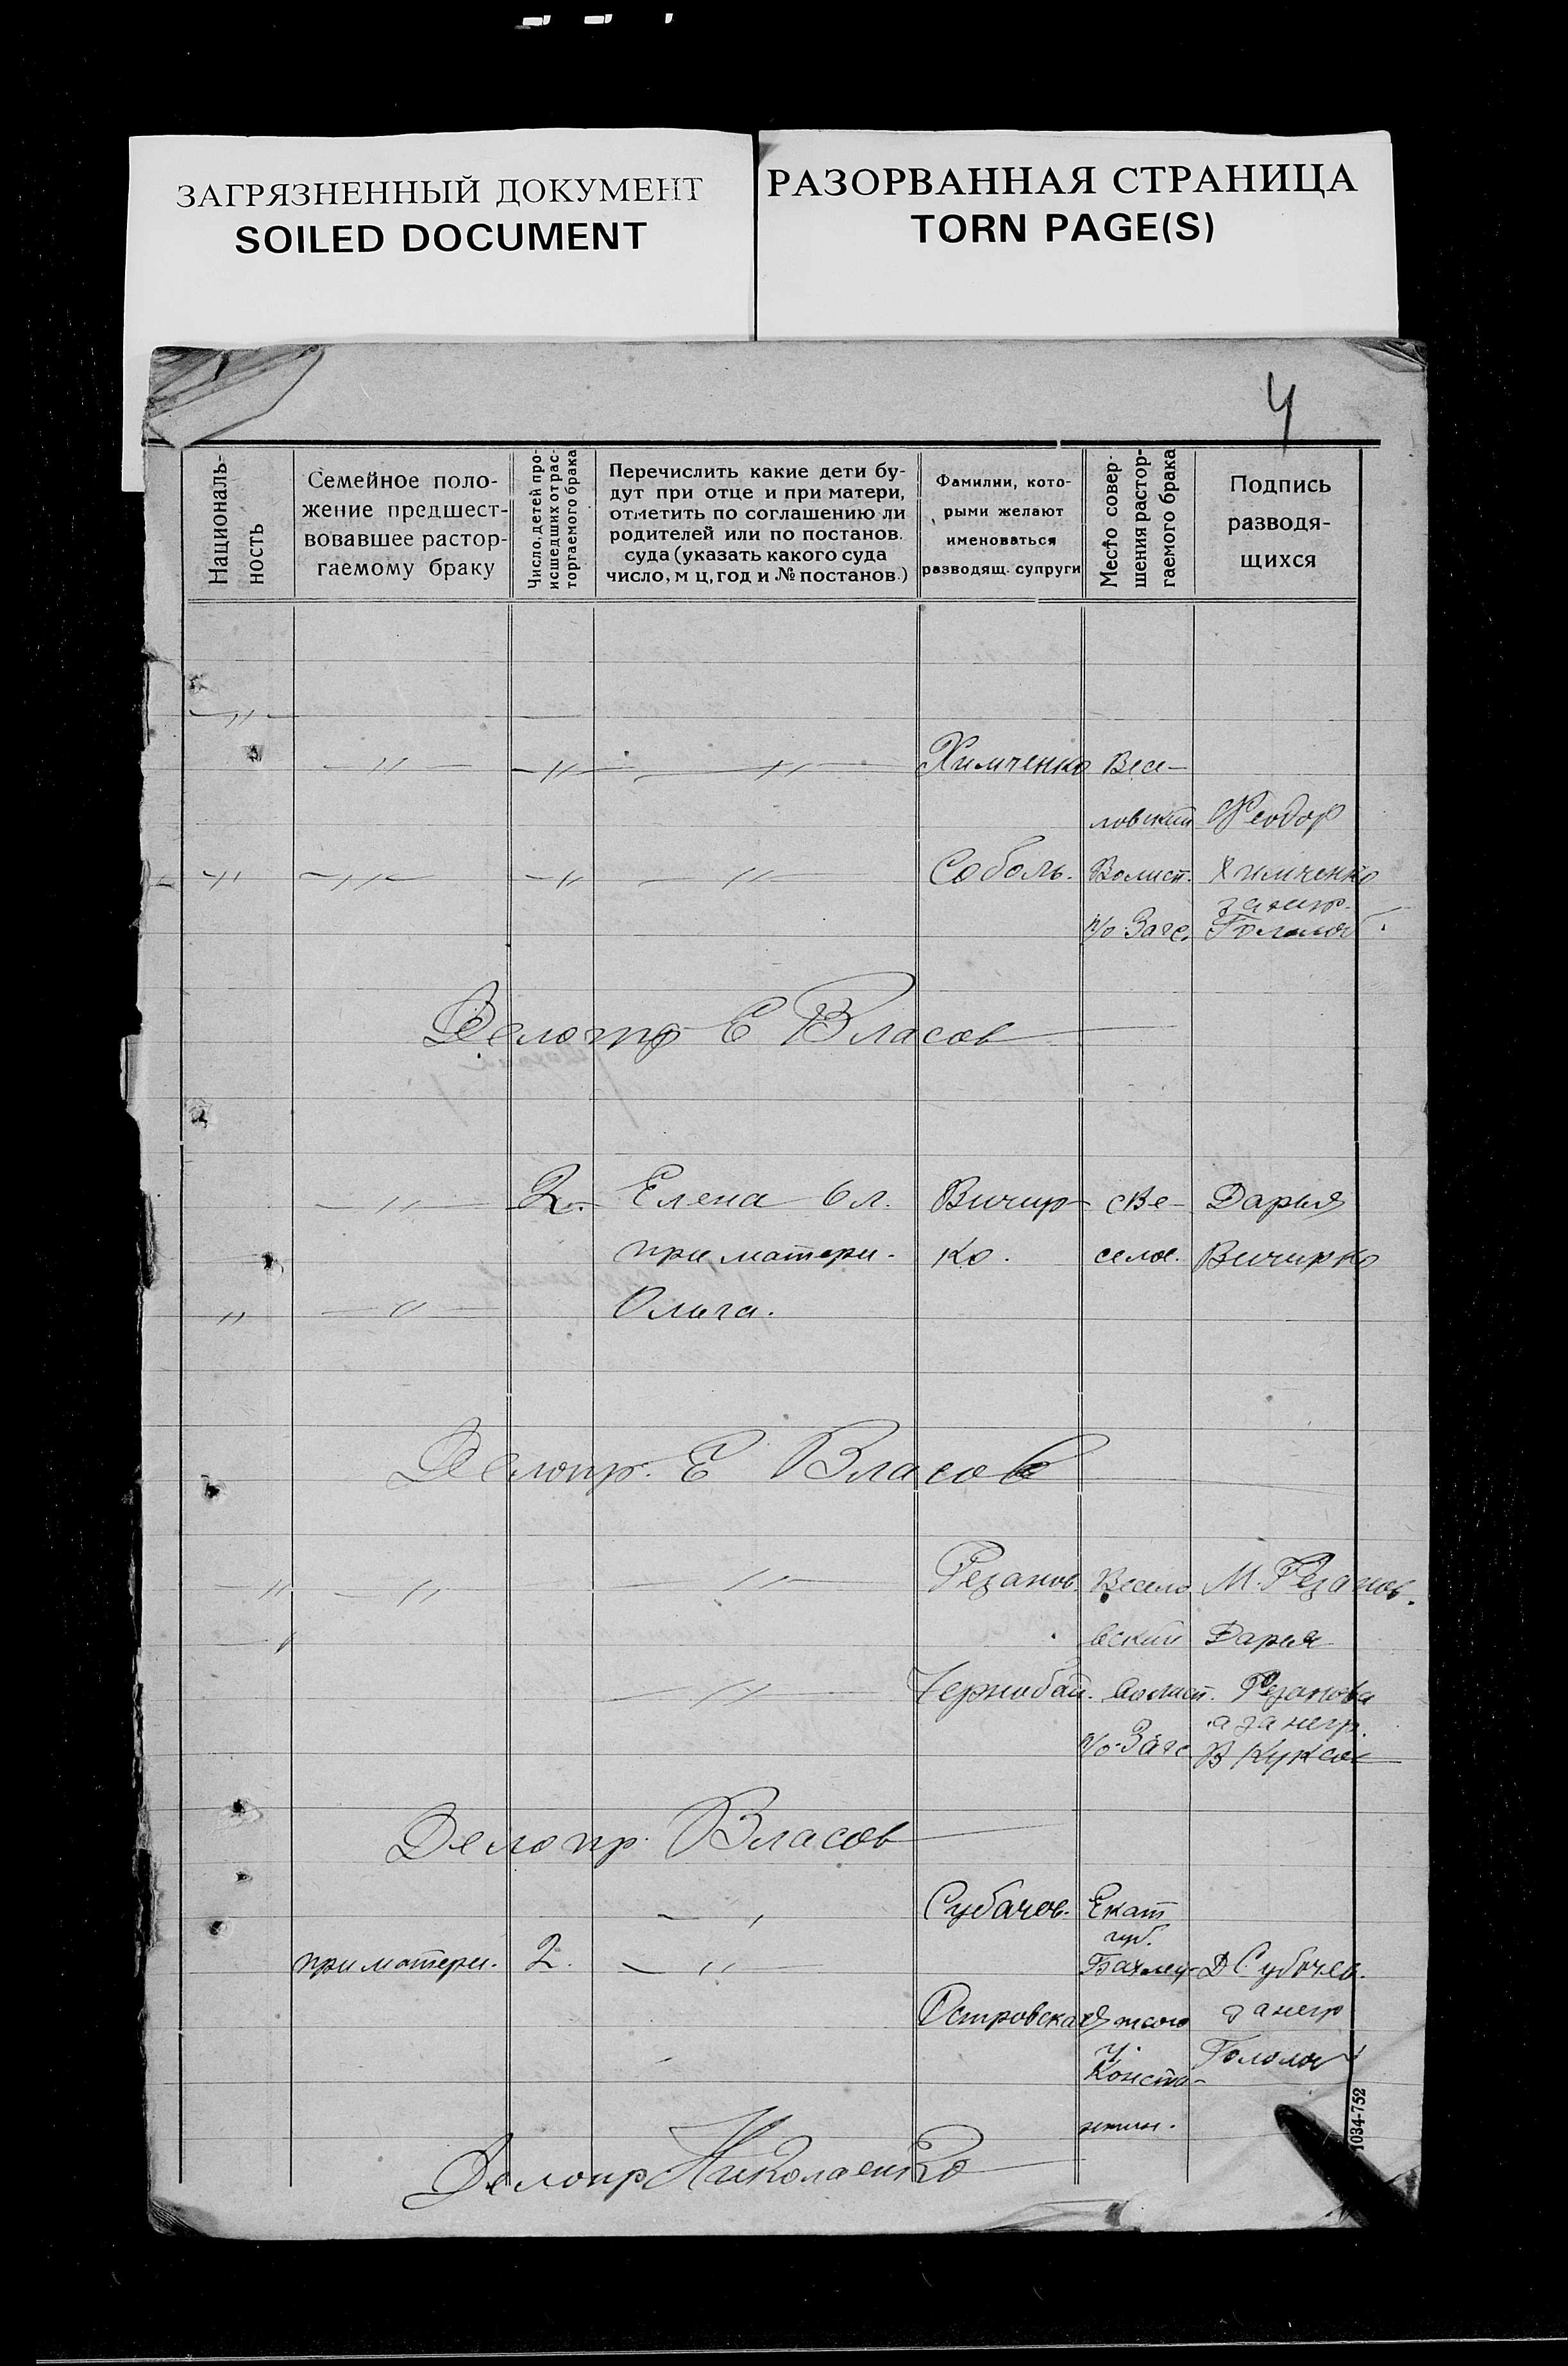 ЗАГРЯЗНЕННЫЙ ДОКУМЕНТ
SOILED DOCUMENT
РАЗОРВАННАЯ СТРАНИЦА
TORN PAGE(S)
4
Националь-
ность
Семейное поло-
жение предшест-
вовавшее растор-
гаемому браку
Число, детей про-
исшедших от рас-
торгаемого брака
Перечислить какие дети бу-
дут при отце и при матери,
отметить по соглашению ли
родителей или по постанов.
суда (указать какого суда
число, м ц, год и № постанов.)
Фамилии, кото-
рыми желают
именоваться
разводящ. супруги
Место совер-
шения растор-
гаемого брака
Подпись
разводя-
щихся
—〃—
—〃— —〃— —〃— Химченко Весе-
ловский Феодор
—〃— —〃— —〃— —〃— Соболь. Волист. Химченко
за негр.
п/о Загс.
Делопр Е Власов
—〃— 2. Елена 6 л. Вичир- с Ве- Дарья
при матери. ко. селое. Вичирко
〃 —〃— Ольга.
Делопр. Е Власов
—〃— —〃— —〃— Резанов. Весело М. Резанов.
вский Дарья
—〃— Чернобай. волист. Резанова
а за негр.
п/о Загс В Кукса
Делопр. Власов
Субачев. Екат
губ.
при матери. 2. —〃— Бахму- Д Субачев.
Островская тского за негр
у.
Конста-
нтин.
Делопр Николаенко
1034-752